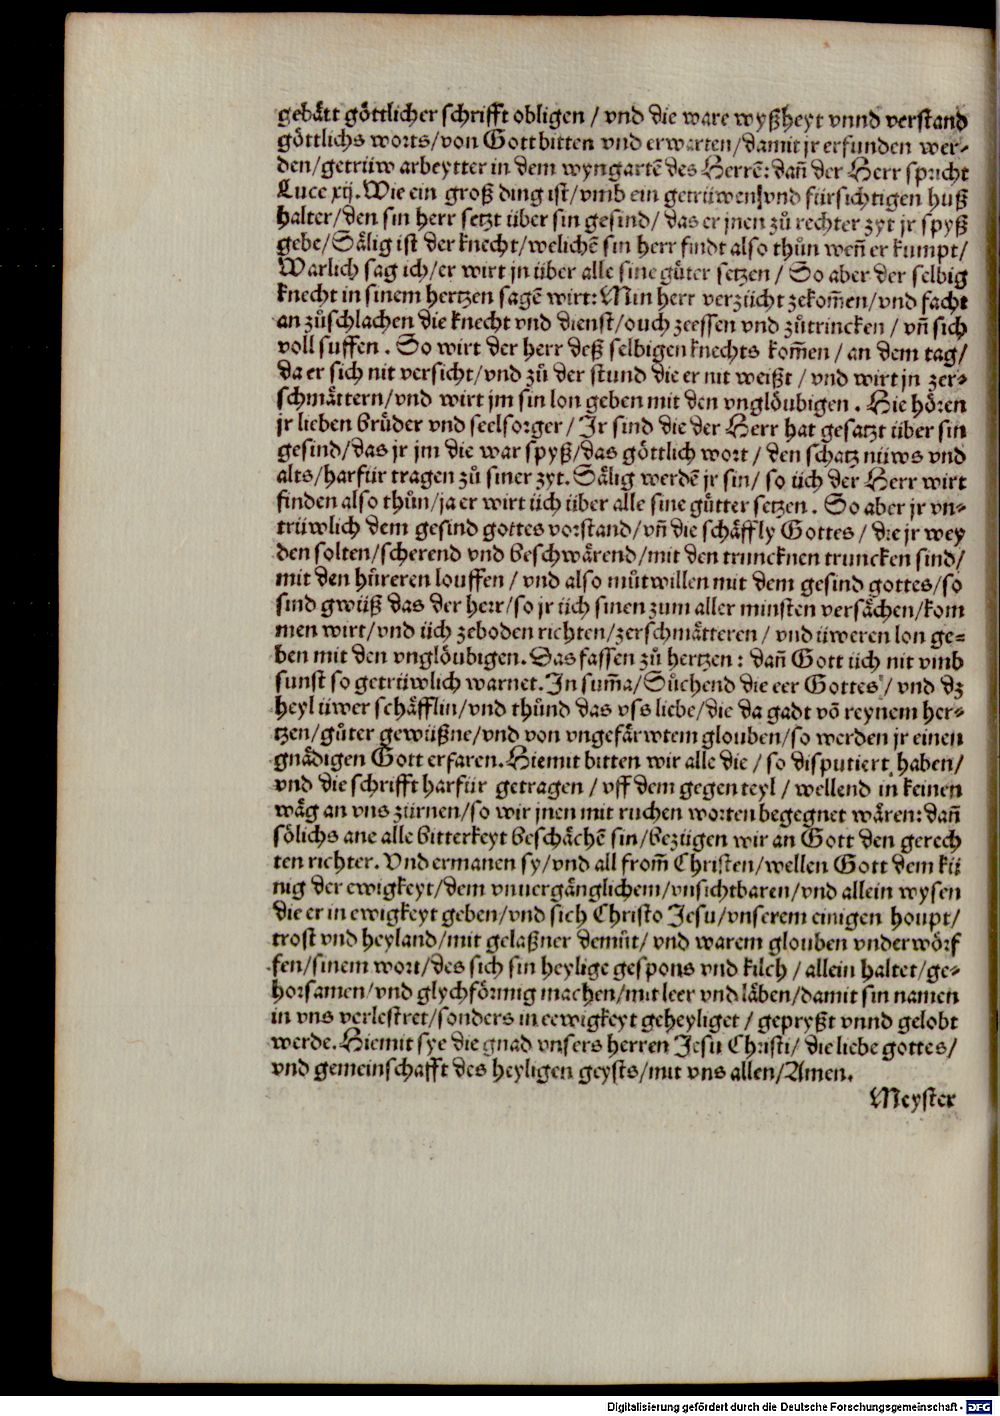 gebätt göttlicher schrifft obligen / vnd die ware wyßheyt vnnd verstand
göttlichs worts/von Gott bitten vnd erwarten/damit jr erfunden wer-
den/getrüw arbeytter in dem wyngartē des Herrē: dañ der Herr spricht
Luce xij. Wie ein groß ding ist/vmb ein getrüwen/vnd fürsichtigen huß
halter/den sin herr setzt über sin gesind/das er jnen zů rechter zyt jr spyß
gebe/Sälig ist der knecht/welichē sin herr findt also thůn weñ er kumpt/
Warlich sag ich/er wirt jn über alle sine gůter setzen / So aber der selbig
knecht in sinem hertzen sagē wirt: Min herr verzücht zekom̃en/vnd facht
an zůschlachen die knecht vnd dienst/ouch zeessen vnd zůtrincken / vñ sich
voll suffen. So wirt der herr deß selbigen knechts kom̃en / an dem tag/
da er sich nit versicht/vnd zů der stund die er nit weißt / vnd wirt jn zer-
schmättern/vnd wirt jm sin lon geben mit den vnglöubigen. Hie hören
jr lieben brůder vnd seelsorger / Jr sind die der Herr hat gesatzt über sin
gesind/das jr jm die war spyß/das göttlich wort / den schatz nüws vnd
alts/harfür tragen zů siner zyt. Sälig werdē jr sin/ so üch der Herr wirt
finden also thůn/ja er wirt üch über alle sine gůtter setzen. So aber jr vn-
trüwlich dem gesind gottes vorstand/vñ die schäffly Gottes / die jr wey
den solten/scherend vnd beschwärend/mit den truncknen truncken sind/
mit den hůreren louffen / vnd also můtwillen mit dem gesind gottes/so
sind gwüß das der herr/so jr üch sinen zum aller minsten versächen/kom
men wirt/vnd üch zeboden richten/zerschmätteren / vnd üweren lon ge-
ben mit den vnglöubigen. Das fassen zů hertzen : dañ Gott üch nit vmb
sunst so getrüwlich warnet. In sum̃a/Sůchend die eer Gottes / vnd dz
heyl üwer schäfflin/vnd thůnd das vss liebe/die da gadt vō reynem her-
tzen/gůter gewüßne/vnd von vngefärwtem glouben/so werden jr einen
gnädigen Gott erfaren. Hiemit bitten wir alle die / so disputiert haben/
vnd die schrifft harfür getragen / vff dem gegenteyl / wellend in keinen
wäg an vns zürnen/so wir jnen mit ruchen worten begegnet wären: dañ
sölichs ane alle bitterkeyt beschächē sin/bezügen wir an Gott den gerech
ten richter. Vnd ermanen sy/vnd all from̃ Christen/wellen Gott dem kü
nig der ewigkeyt/dem vnuergänglichem/vnsichtbaren/vnd allein wysen
die er in ewigkeyt geben/vnd sich Christo Jesu/vnserem einigen houpt/
trost vnd heyland/mit gelaßner demůt/ vnd warem glouben vnderwörf
fen/sinem wort/des sich sin heylige gespons vnd kilch / allein haltet/ge-
horsamen/vnd glychförmig machen/mit leer vnd läben/damit sin namen
in vns verlestret/sonders in eewigkeyt geheyliget / geprySt vnnd gelobt
werde. Hiemit sye die gnad vnsers herren Jesu Christi/ die liebe gottes/
vnd gemeinschafft des heyligen geysts/mit vns allen/Amen.
Meyster
Digitalisierung gefördert durch die Deutsche Forschungsgemeinschaft - DFG